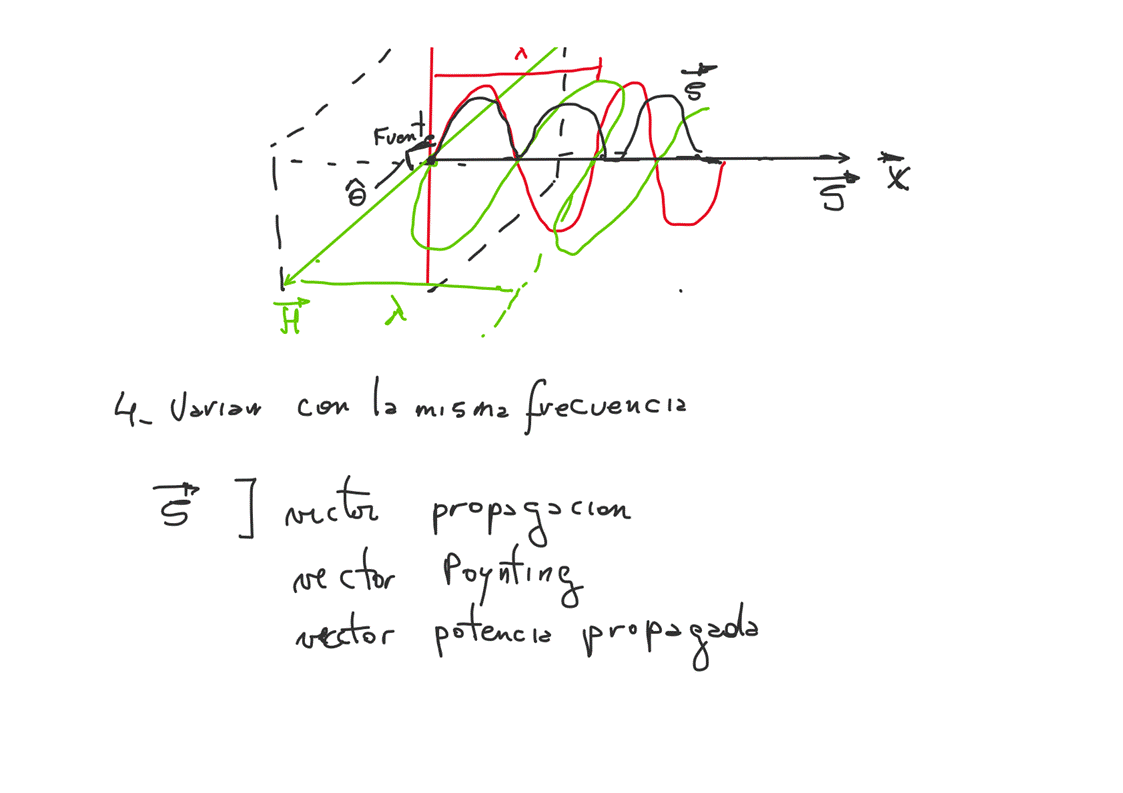 λ
S
Fuent
θ̂
S X
H
λ
4- Varian con la misma frecuencia
S ] vector propagacion
vector Poynting
vector potencia propagada